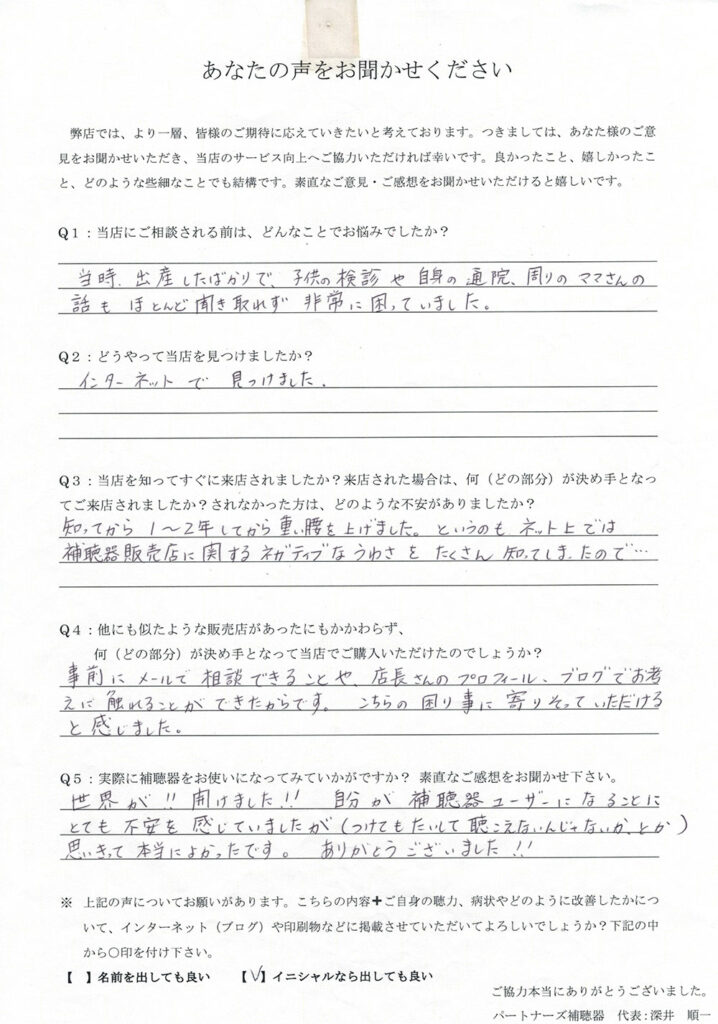 あなたの声をお聞かせください
弊店では、より一層、皆様のご期待に応えていきたいと考えております。つきましては、あなた様のご意
見をお聞かせいただき、当店のサービス向上へご協力いただければ幸いです。良かったこと、嬉しかったこ
と、どのような些細なことでも結構です。素直なご意見・ご感想をお聞かせいただけると嬉しいです。
Q1：当店にご相談される前は、どんなことでお悩みでしたか？
当時、出産したばかりで、子供の検診や自身の通院、周りのママさんの
話もほとんど聞き取れず非常に困っていました。
Q2：どうやって当店を見つけましたか？
インターネットで見つけました。
Q3：当店を知ってすぐに来店されましたか？来店された場合は、何（どの部分）が決め手となっ
てご来店されましたか？されなかった方は、どのような不安がありましたか？
知ってから1～2年してから重い腰を上げました。というのもネット上では
補聴器販売店に関するネガティブなうわさをたくさん知ってしまったので…
Q4：他にも似たような販売店があったにもかかわらず、
何（どの部分）が決め手となって当店でご購入いただけたのでしょうか？
事前にメールで相談できることや、店長さんのプロフィール、ブログでお考
えに触れることができたからです。こちらの困り事に寄りそっていただける
と感じました。
Q5：実際に補聴器をお使いになってみていかがですか？ 素直なご感想をお聞かせ下さい。
世界が!! 開けました!! 自分が補聴器ユーザーになることに
とても不安を感じていましたが(つけてもたいして聴こえないんじゃないか、とか)
思いきって本当によかったです。ありがとうございました!!
※ 上記の声についてお願いがあります。こちらの内容＋ご自身の聴力、病状やどのように改善したかにつ
いて、インターネット（ブログ）や印刷物などに掲載させていただいてよろしいでしょうか？下記の中
から〇印を付け下さい。
【 】名前を出しても良い 【✓】イニシャルなら出しても良い
ご協力本当にありがとうございました。
パートナーズ補聴器 代表：深井 順一